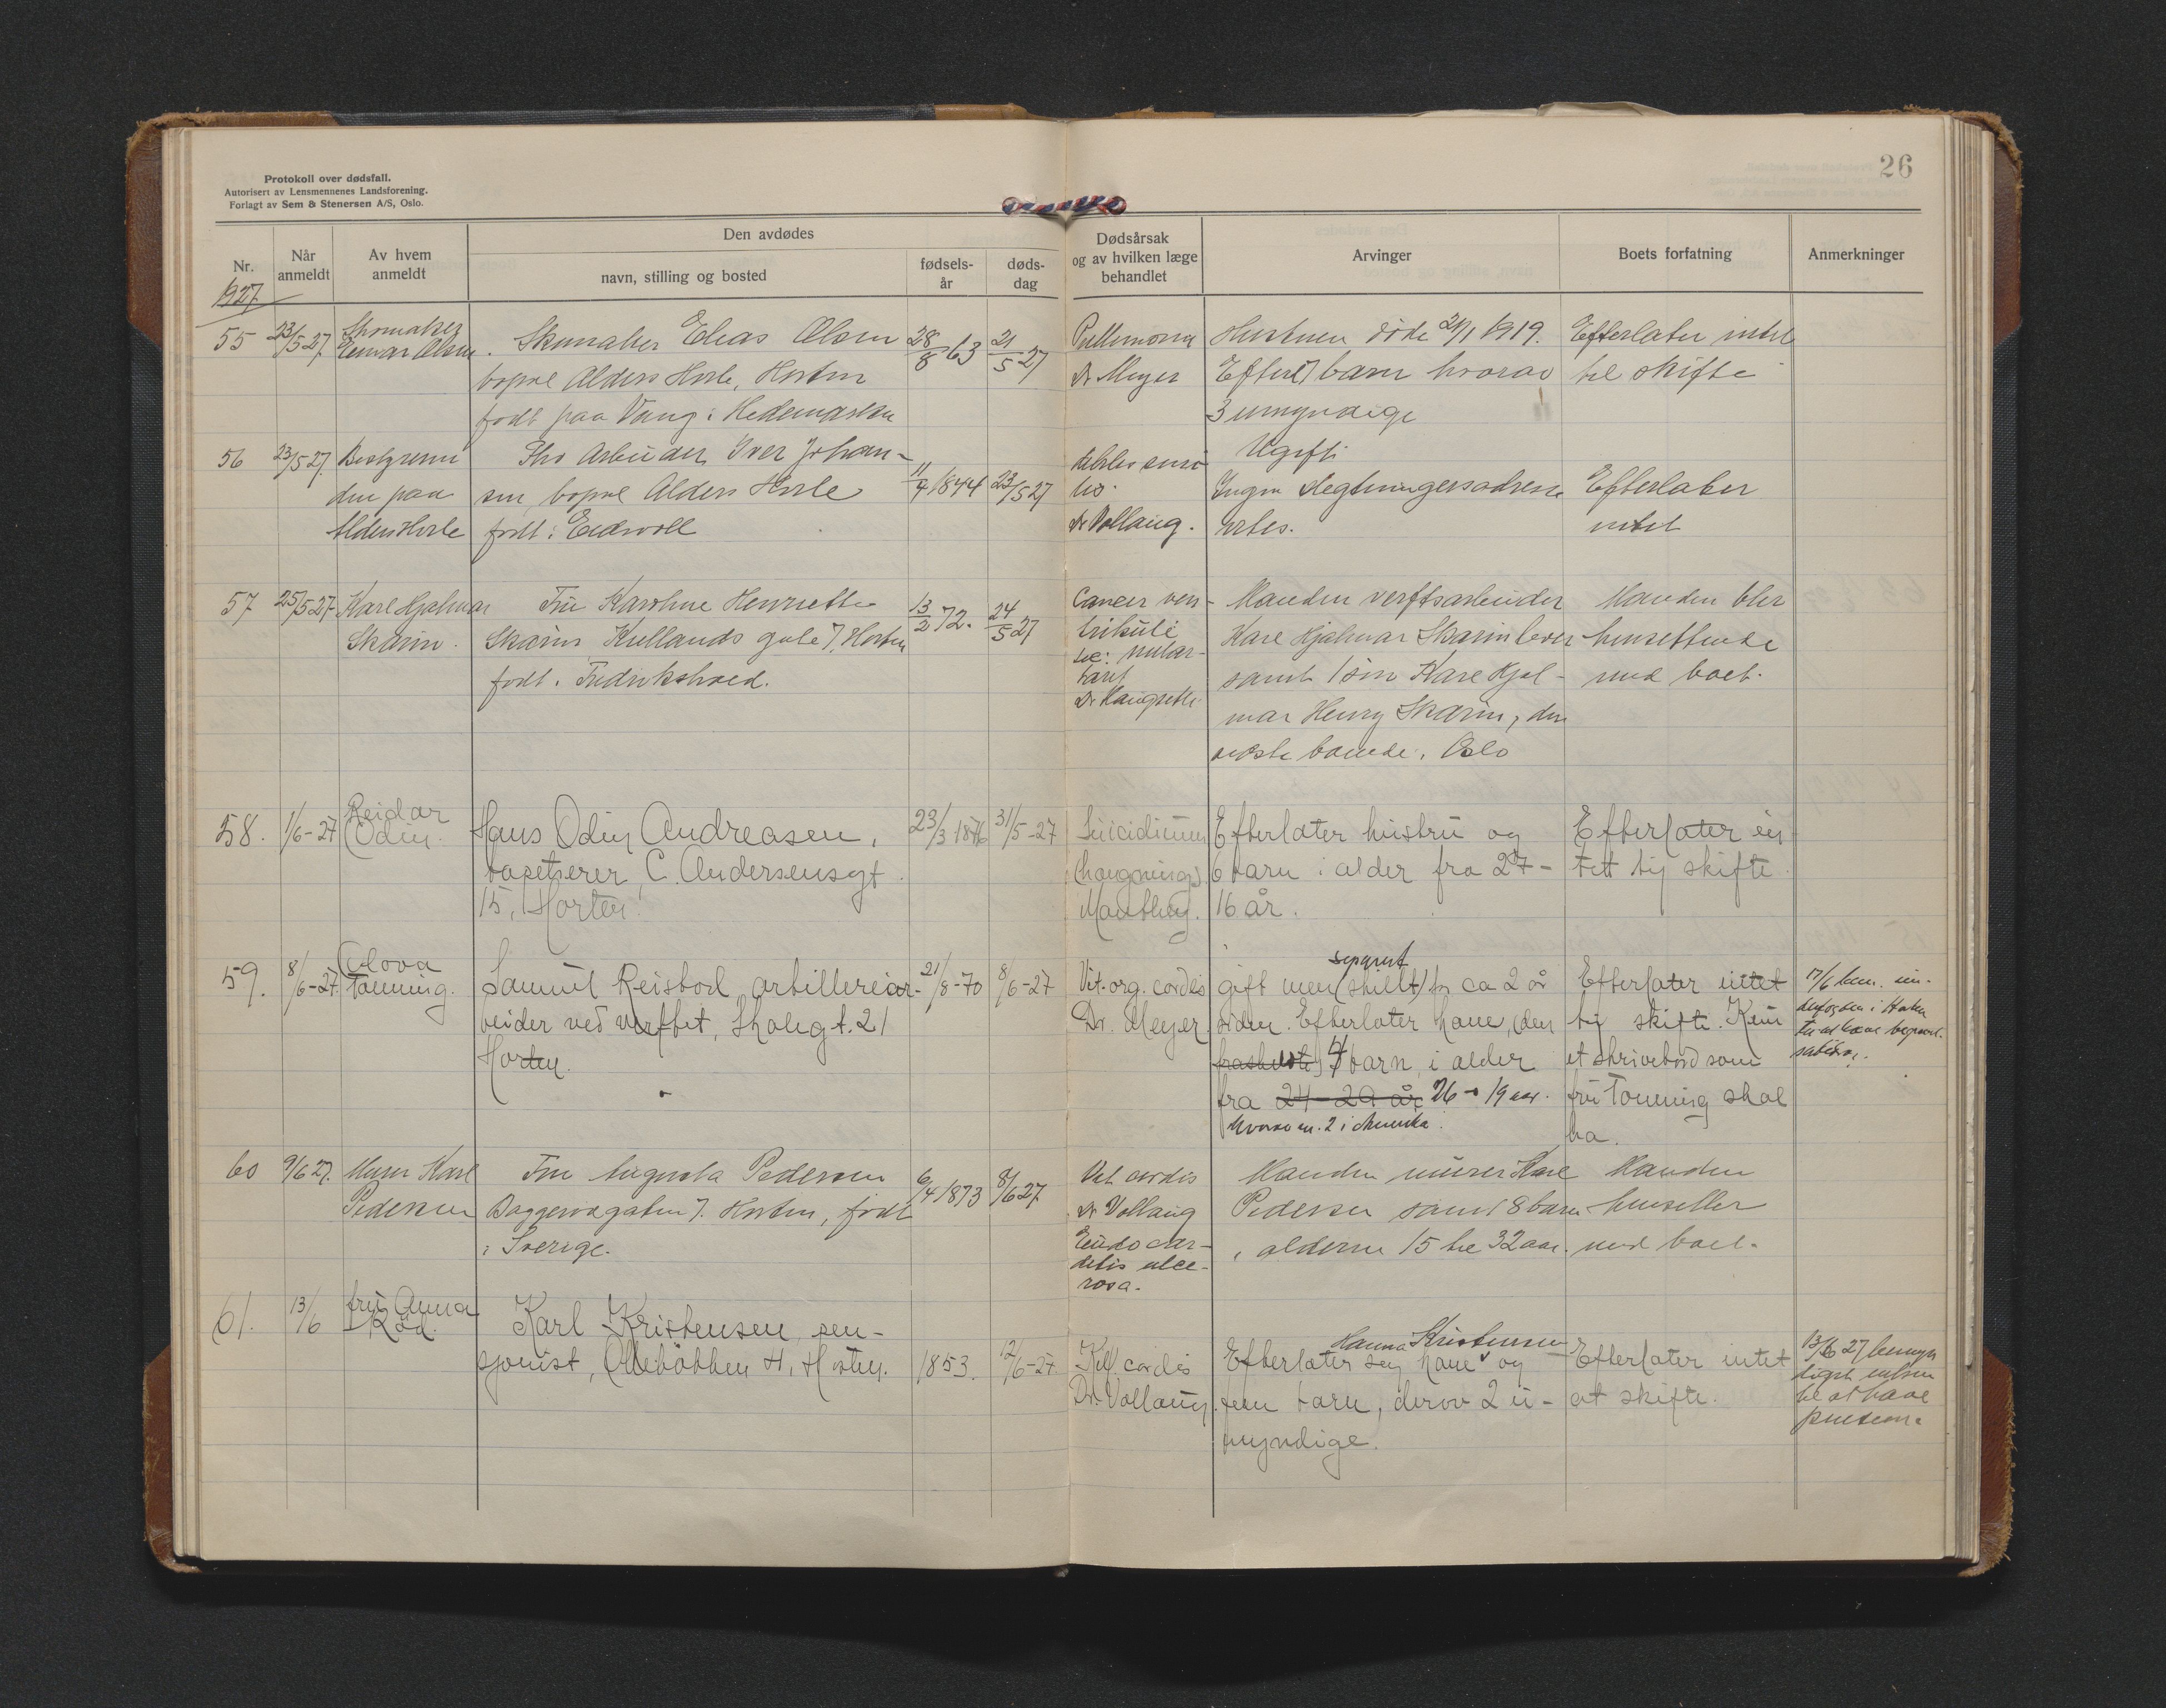 Protokoll over dødsfall.
Autorisert av Lensmennenes Landsforening.
Forlagt av Sem & Stenersen A/S, Oslo.
26
Nr.
Når anmeldt
Av hvem anmeldt
Den avdødes
navn, stilling og bosted
fødsels-år
døds-dag
Dødsårsak og av hvilken læge behandlet
Arvinger
Boets forfatning
Anmerkninger
1927
55 23/5 27 Skomaker Olsen
Skomaker Elias Olsen
bopæl Alders Hvile, Horten
født paa Vang i Hedemarken
28/8 63 21/5 27
Dr Meyer
Hustruen døde 21/1 1919.
Efterl. 7 barn hvorav
3 umyndige
Efterlater intet
til skifte
56 23/5 27 Bestyrerinden
paa
Alders Hvile
Fhv Arbeider Iver Johan-
sen, bopæl Alders Hvile
født i Eidsvoll
1844 23/5 27
Dr Vollaug.
Ugift
Ingen slegtningers adresse
vites.
Efterlater
intet
57 25/5 27 Karl Hjalmar
Skarin.
Fru Karoline Henriette
Skarin, Kullands gate 7, Horten
født i Fredrikshald.
13/2 72. 24/5 27
Cancer ven-
triculi
Manden verftsarbeider
Karl Hjalmar Skarin lever
samt 1 søn Karl Hjal-
mar Henry Skarin, den
sidste boende i Oslo
Manden blir
hensittende
med boet.
58. 1/6-27 Reidar
Odin.
Hans Odin Andreasen,
tapetserer, C. Andersensgt.
15, Horten.
23/3 1876 31/5-27
Suicidium
(hængning)
Efterlater hustru og
6 barn i alder fra 27-
16 år.
Efterlater in-
tett til skifte.
59. 8/6-27. Alova
Tønning.
Samuel Reisbol, artilleriar-
beider ved verftet, Skolegt. 21
Horten.
21/8-70 8/6-27
Vit. org. cordis
Dr. Meyer
separert
gift men (skilt) for ca 2 år
siden. Efterlater kone, (den
fraskilte) 4 barn, i alder
fra 24-29 år 26-19 aar.
hvorav 2 i Amerika.
Efterlater intet
til skifte. Kun
et skrivebord som
fru Tønning skal
ha.
60 9/6 27. Murer Karl
Pedersen
Fru Augusta Pedersen
Baggerødgaten 7. Horten, født
i Sverige.
6/4 1873 8/6 27
Vit. cordis
Dr Vollaug
Endocar-
ditis ulce-
rosa.
Manden murer Karl
Pedersen samt 8 barn
i alderen 15 til 32 aar.
Manden
hensitter
med boet.
61. 13/6 fru Anna
Röd.
Karl Kristensen, pen-
sjonist, Ollebakken 4, Horten.
1853. 12/6-27.
Vit. cordis
Dr. Vollaug.
Hanna Kristensen
Efterlater sig kone og
fem barn, derav 2 u-
myndige.
Efterlater intet
at skifte.
13/6 27